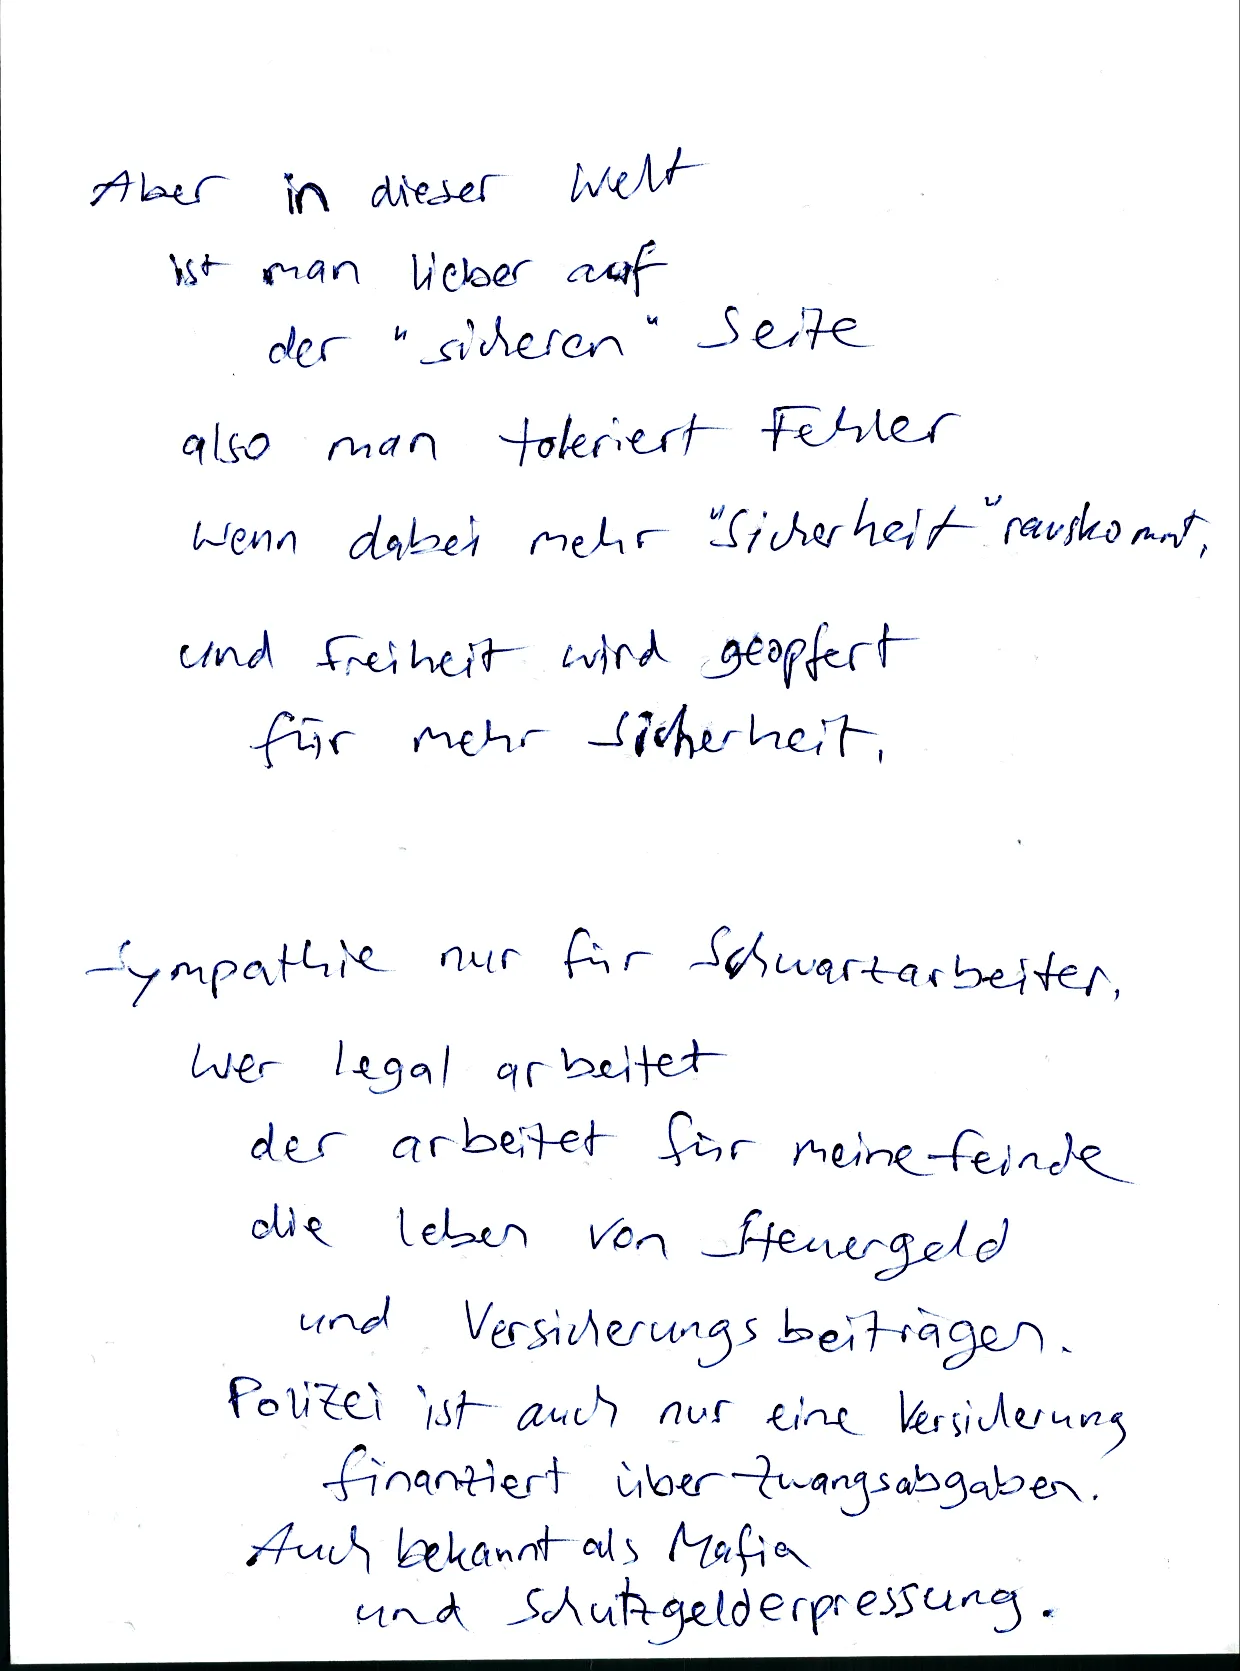 Aber in dieser Welt
ist man lieber auf
der "sicheren" Seite
also man toleriert Fehler
wenn dabei mehr "Sicherheit" rauskommt,
und Freiheit wird geopfert
für mehr Sicherheit,
Sympathie nur für Schwarzarbeiter,
wer legal arbeitet
der arbeitet für meine Feinde
die leben von Steuergeld
und Versicherungsbeiträgen.
Polizei ist auch nur eine Versicherung
finanziert über Zwangsabgaben.
Auch bekannt als Mafia
und Schutzgelderpressung.